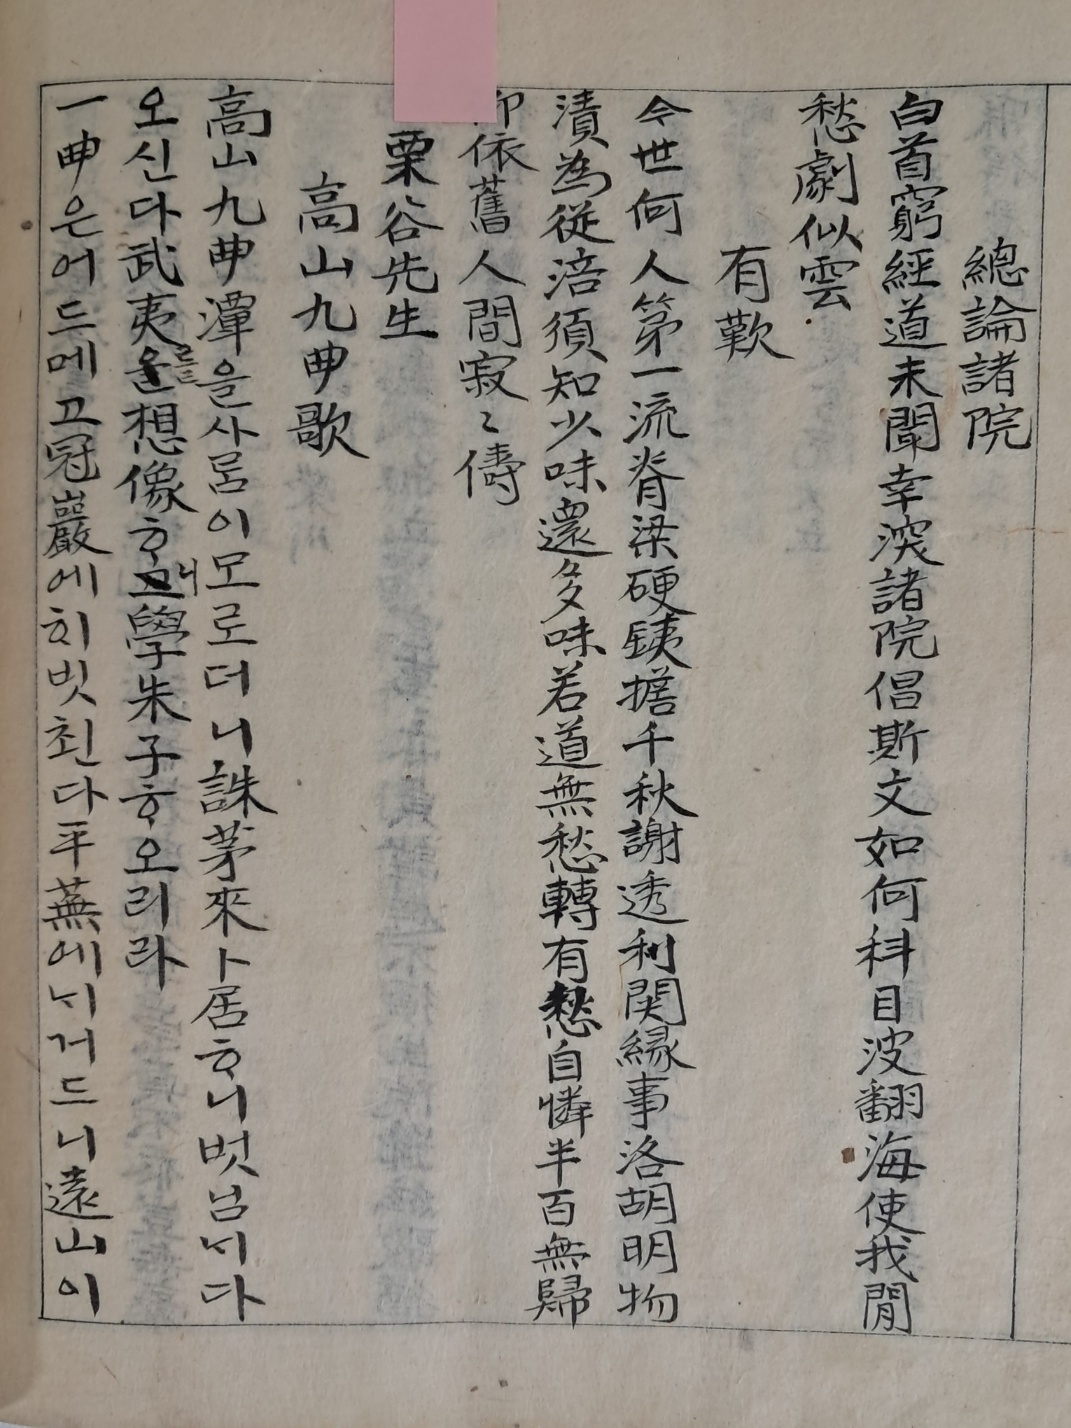 總論諸院
白首窮經道未聞幸深諸院倡斯文如何科目波翻海使我閒
愁劇似雲
有歎
今世何人第一流脊梁硬鐵擔千秋謝透利関縁事洛胡明物
漬為從涪須知少味還多味若道無愁轉有愁自憐半百無歸
仰依舊人間寂〻儔
栗谷先生
高山九曲歌
高山九曲潭을사ᄅᆞᆷ이모로더니誅茅來卜居ᄒᆞ니벗님ᄂᆡ다
오신다武夷를想像ᄒᆞ고學朱子ᄒᆞ오리라
一曲은어드메고冠巖에ᄒᆡ빗쵠다平蕪에ᄂᆡ거드니遠山이